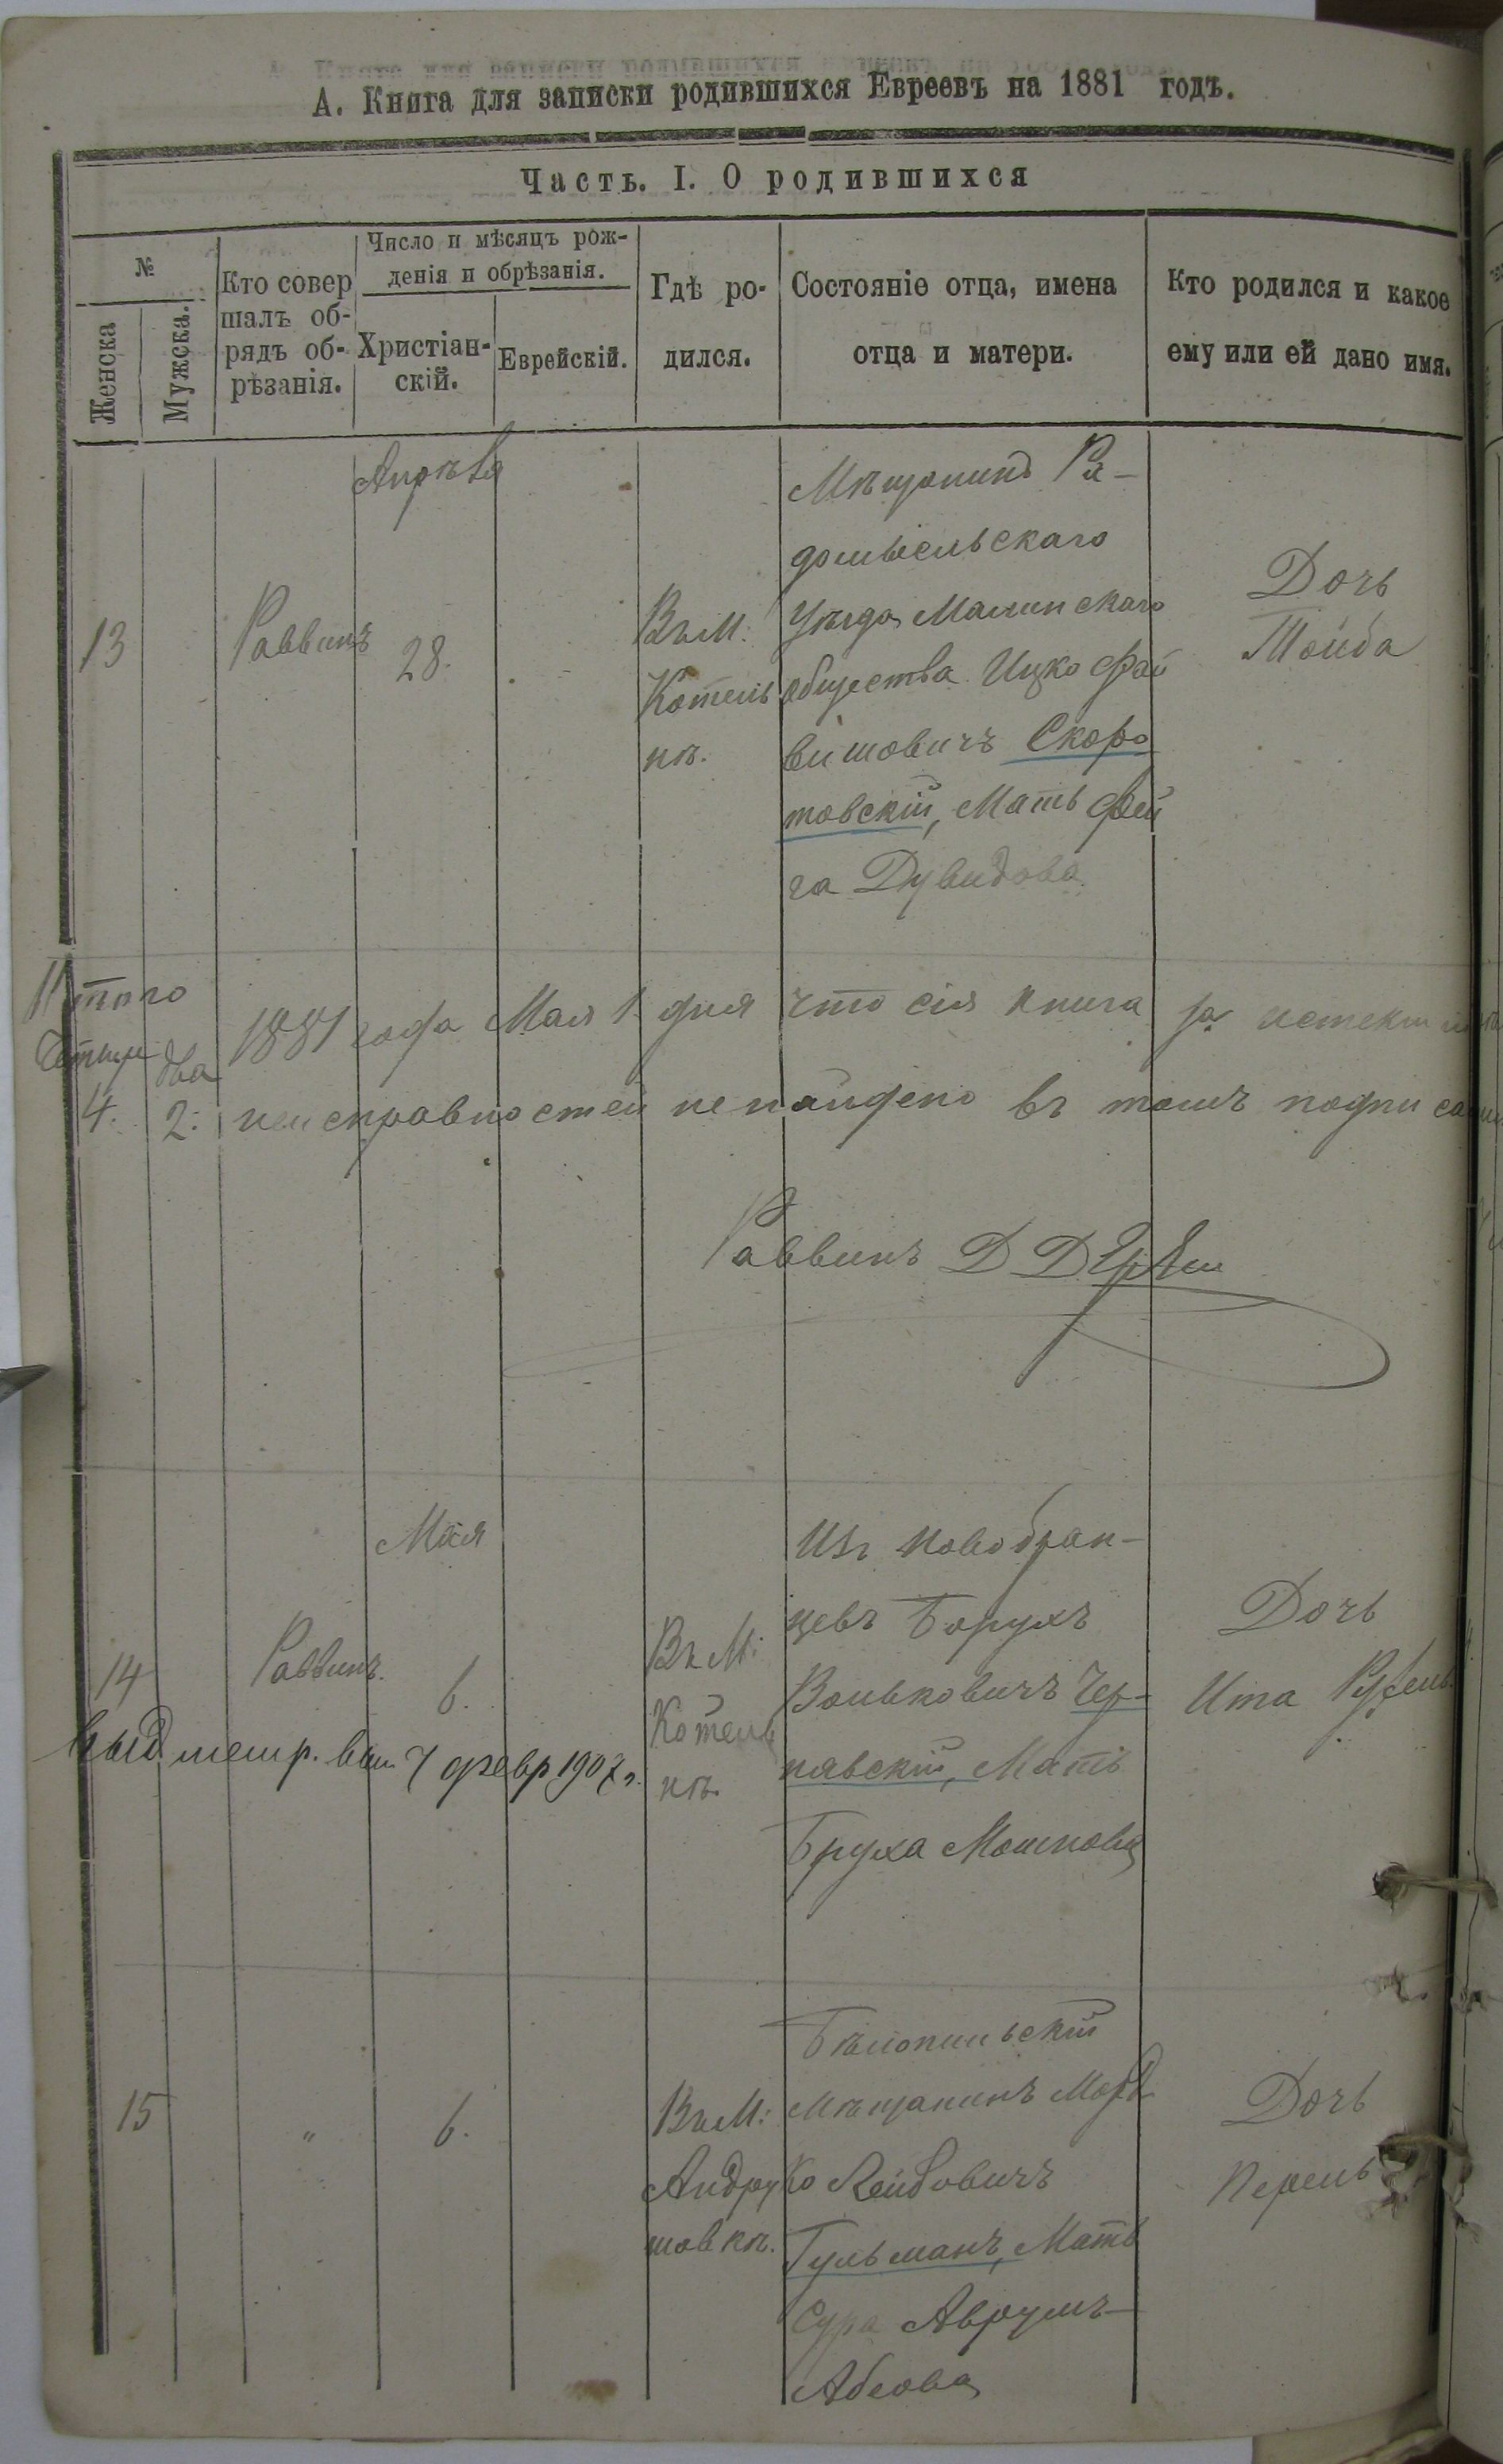 А. Книга для записки родившихся Евреевъ на 1881 годъ.
Часть. I. О родившихся
№
Женска
Мужска.
Кто совер
шалъ об-
рядъ об-
рѣзанія.
Число и мѣсяцъ рож-
денія и обрѣзанія.
Христіан-
скій.
Еврейскій.
Гдѣ ро-
дился.
Состояніе отца, имена
отца и матери.
Кто родился и какое
ему или ей дано имя.
13
Раввинъ
Апрѣля
28.
Въ М:
Котель
нѣ.
Мѣщанинъ Ра-
домысльскаго
Уѣзда Малинскаго
общества Ицко Фай
вишовичъ Скоро
товскій, Мать Фей
га Дувидова
Дочь
Тойба
Итого
Четыре два
4. 2.
1881 года Мая 1 дня что сія книга за
неисправностей не найдено въ томъ
Раввинъ Д Д
14
Раввинъ.
Мая
6.
Въ М:
Котель
нѣ.
Изъ новобран-
цевъ Борухъ
Вольковичъ Чер-
нявскій, Мать
Бруха Мошкова
Дочь
Ита
выд. метр. вып 7 февр 1907 г.
15
"
6.
Въ М:
Андру
шовкѣ.
Бѣлопильскій
Мѣщанинъ Морд
ко Лейбовичъ
Гульманъ, Мать
Сура Аврумъ-
Абеова
Дочь
Перель